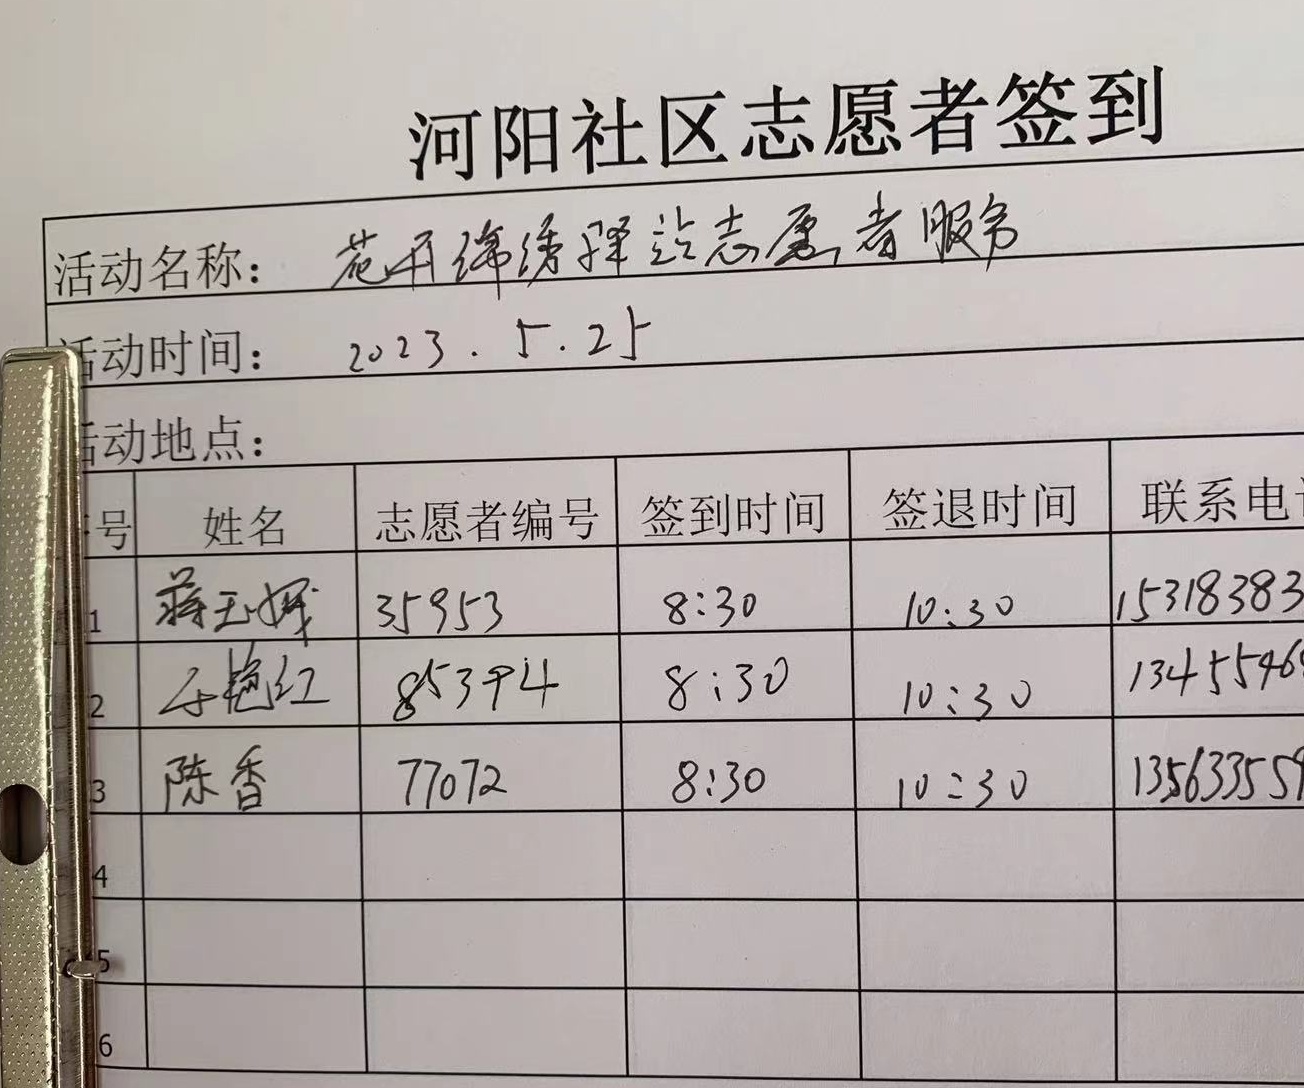 河阳社区志愿者签到
活动名称： 花开绵绣驿站志愿者服务
活动时间： 2023.5.25
活动地点：
号 姓名 志愿者编号 签到时间 签退时间 联系电
1 蒋玉娥 35953 8:30 10:30 15318383
2 于艳红 85394 8:30 10:30 13455946
3 陈香 77072 8:30 10:30 135633559
4
5
6